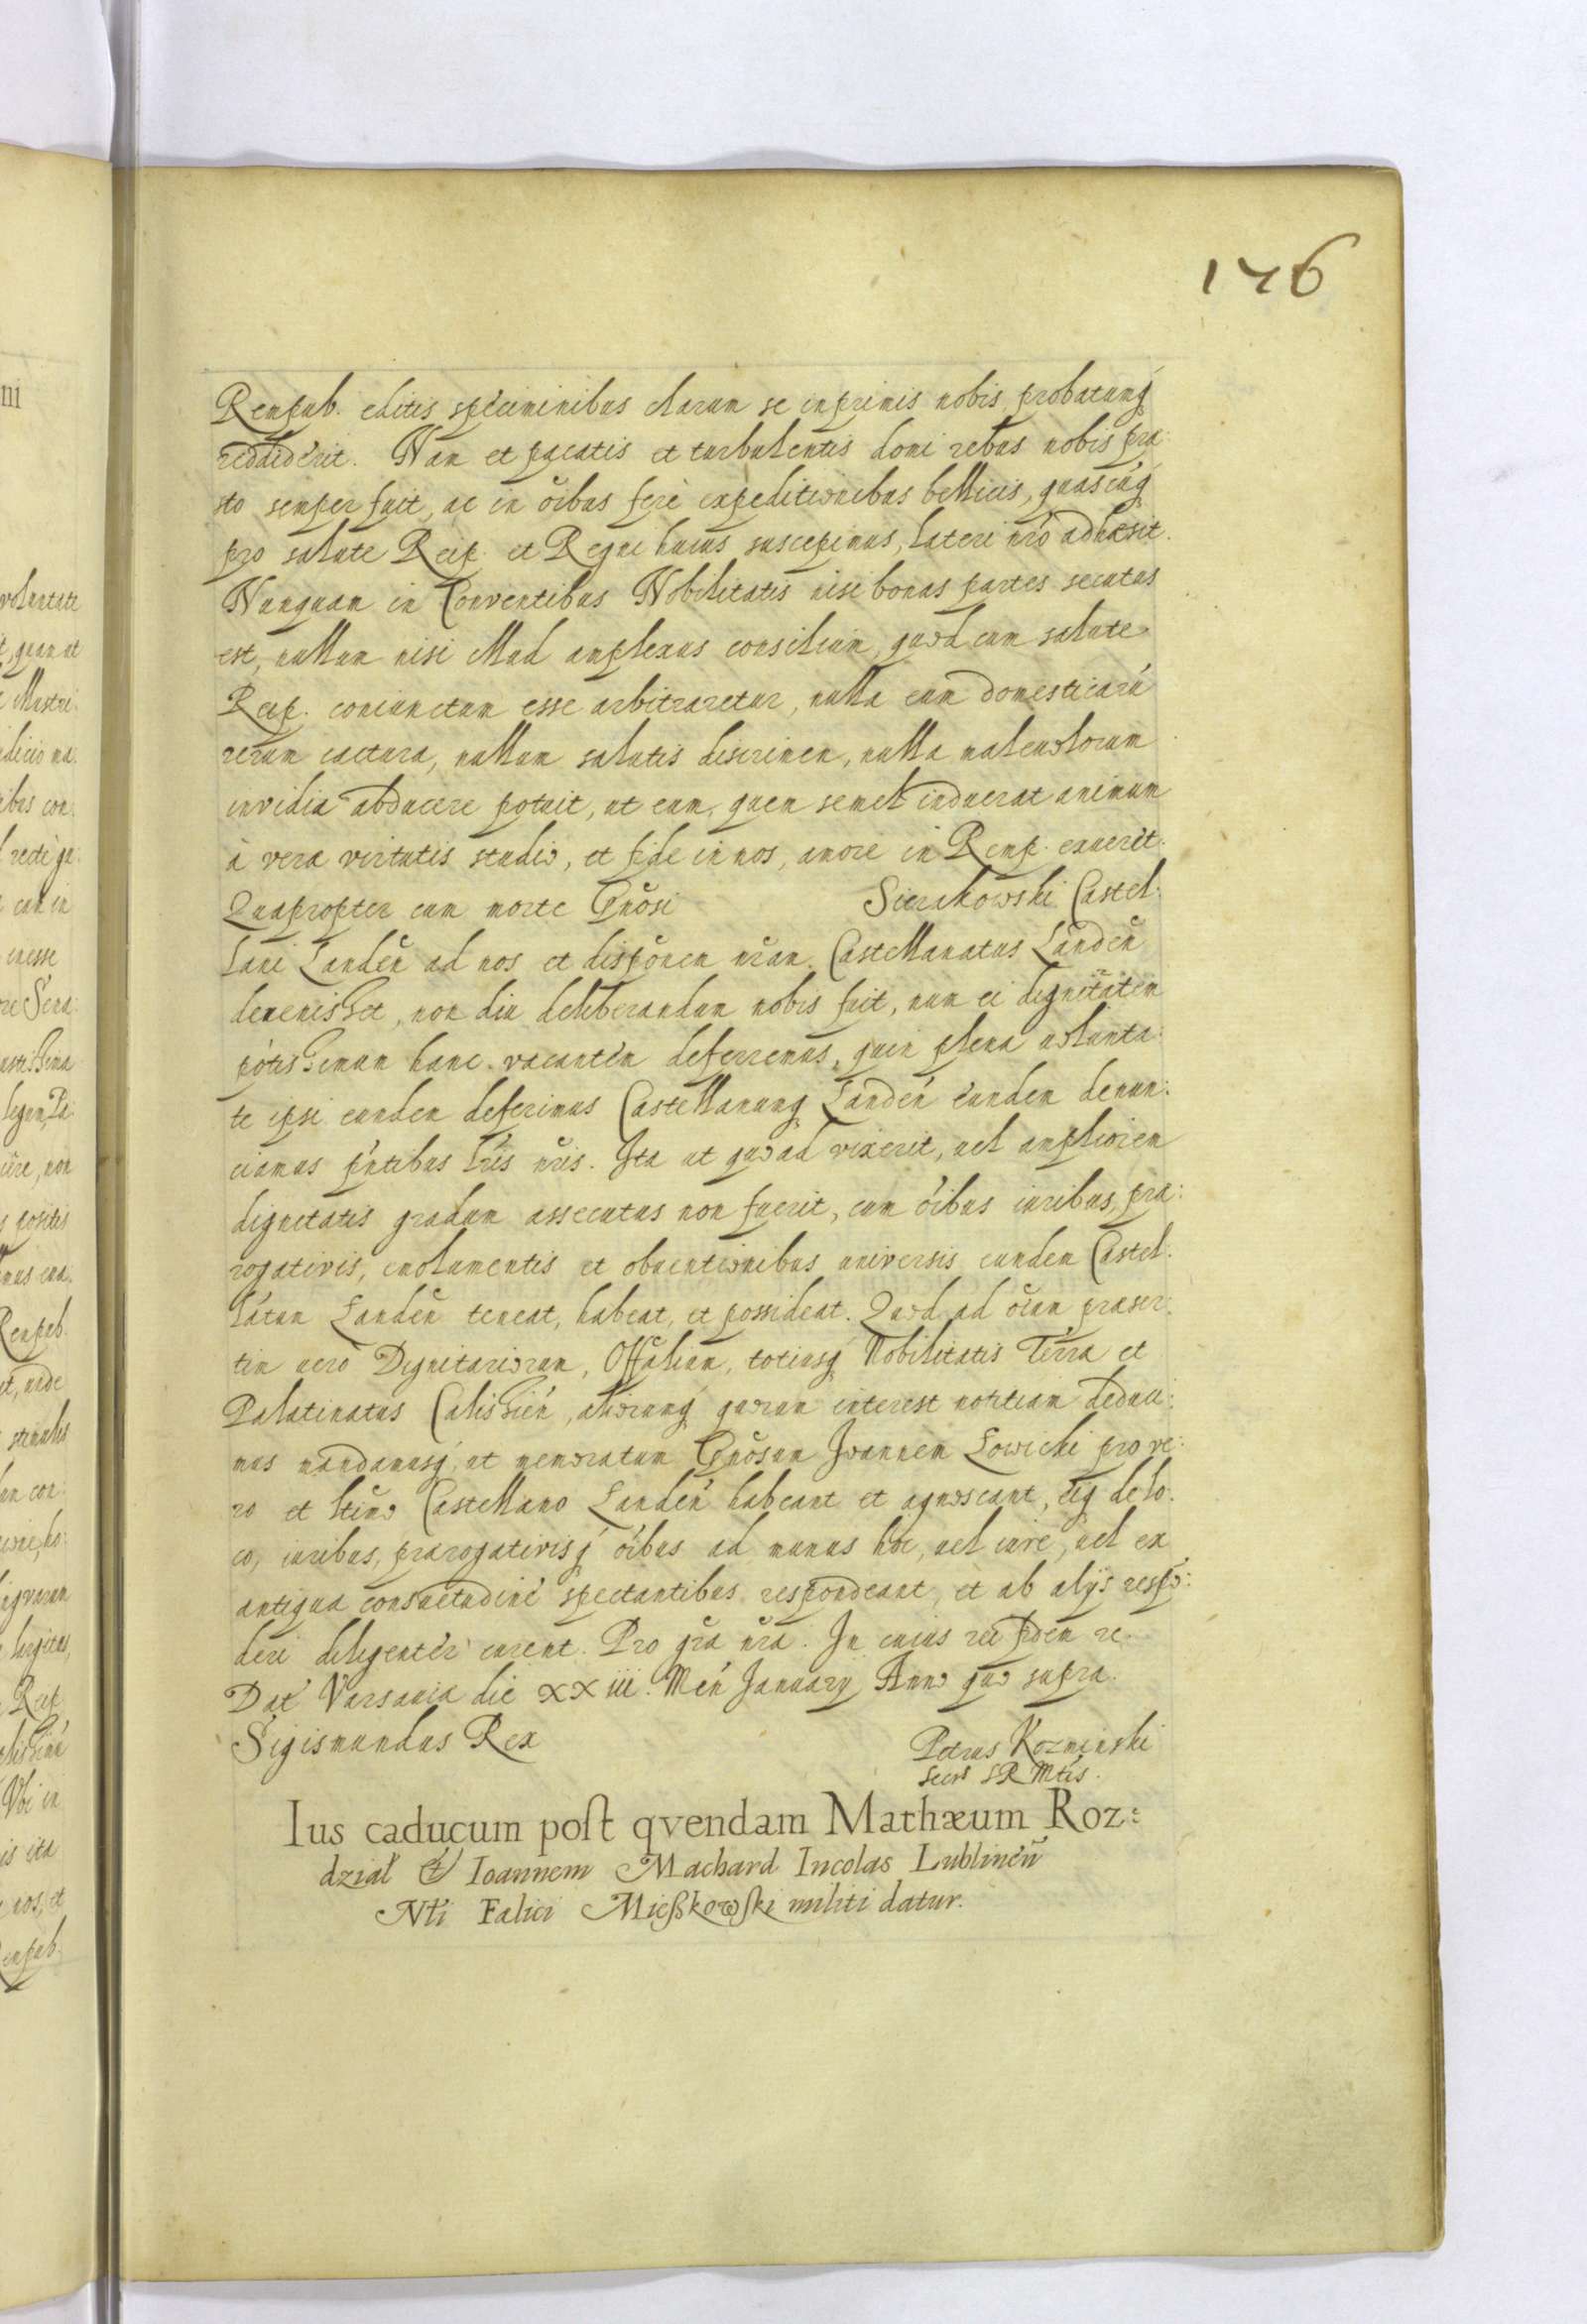 146
Rempub. editis speciminibus clarum se inprimis nobis probatumq́
reddiderit. Nam et pacatis et turbulentis domi rebus nobis præ:
sto semper fuit, ac in oı̃bus ferè expeditionibus bellicis, quascúq́
pro salute Reip. et Regni huius suscepimus, lateri nr̃o adhæsit.
Nunquam in Conventibus Nobilitatis nisi bonas partes secutus
est, nullum nisi illud amplexus consilium, quod cum salute
Reip. coniunctum esse arbitraretur, nulla eum domesticarú
rerum iactura, nullum salutis discrimen, nulla malevolorum
invidia abducere potuit, ut eum, quem semel induerat animum
à vera virtutis studio, et fide in nos, amore in Remp. exuerit.
Quapropter cum morte Gnõsi Sierakowski Castel:
lani Landeñ ad nos et dispõnem nr̃am Castellanatus Landeñ
devenisset, non diu deliberandum nobis fuit, num ei dignitãtem
potissimum hanc vacantem deferremus, quin plena volunta:
te ipsi eandem deferimus Castellanumq́ Landeń eundem denun:
ciamus p̃ntibus lr̃is nr̃is. Ita ut quoad vixerit, vel ampliorem
dignitatis gradum assecutus non fuerit, cum oı̃bus iuribus, præ:
rogativis, emolumentis et obventionibus universis eundem Castel:
látum Landeñ teneat, habeat, et possideat. Quod ad oı̃um præser:
tim vero Dignitariorum, Offãlium, totiusq́ Nobilitatis Terræ et
Palatinatus Calissień, aliorumq́ quorum interest notitiam deduci:
mus mandamusq́, ut memoratum Gnõsum Joannem Lowicki pro ve:
ro et ltı̃mo Castellano Landeń habeant et agnoscant, eiq́ de lo:
co, iuribus, prærogativisq́ oı̃bus ad munus hoc, vel iure, vel ex
antiqua consuetudine spectantibus respondeant, et ab alijs respõ:
deri diligenter curent. Pro gr̃a nr̃a. In cuius rei fidem re.
Dat́ Varsaviæ die XXiii. Meń January Anno quo supra.
Sigismundus Rex
Petrus Kozminski
Secrs SR Mtis.
Ius caducum post qvendam Mathæum Roz:
dział & Ioannem Machard Incolas Lublineñ
Nti Fælici Mięßkowski militi datur.